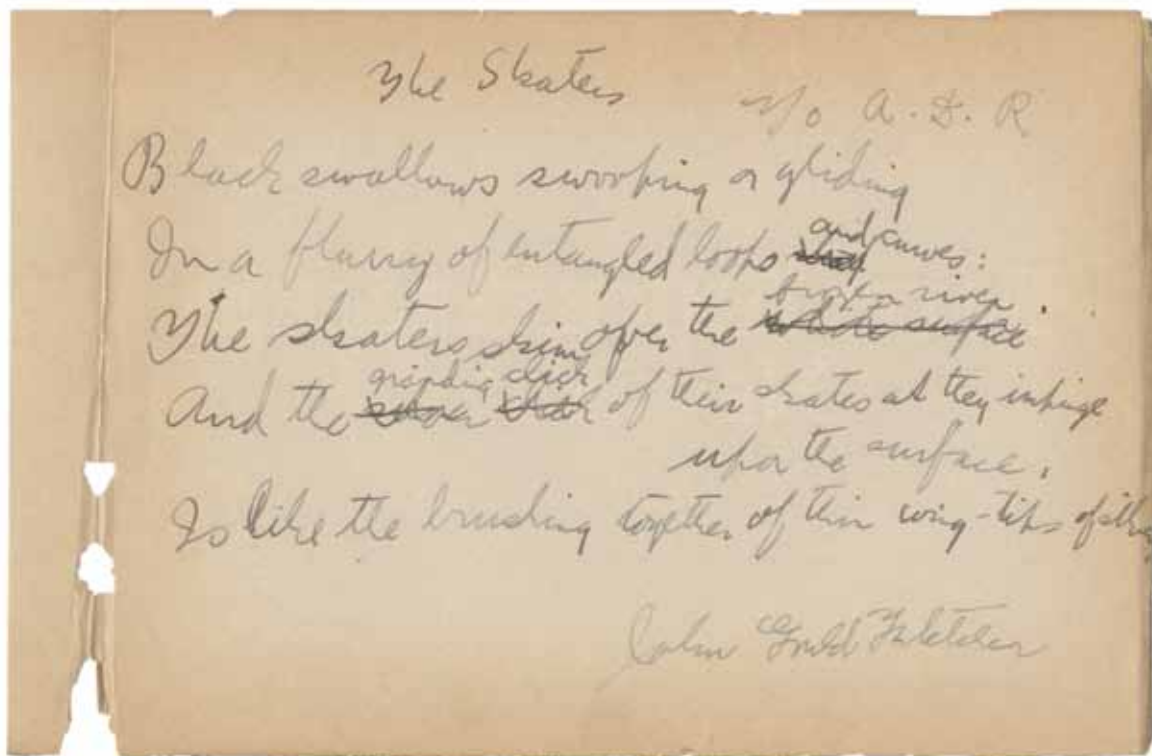 The Skaters
To A. D. R.
Black swallows swooping or gliding
In a flurry of entangled loops and curves:
The skaters skim over the frozen river.
And the grinding click of their skates as they impinge
upon the surface,
Is like the brushing together of thin wing-tips of silver
John Gould Fletcher